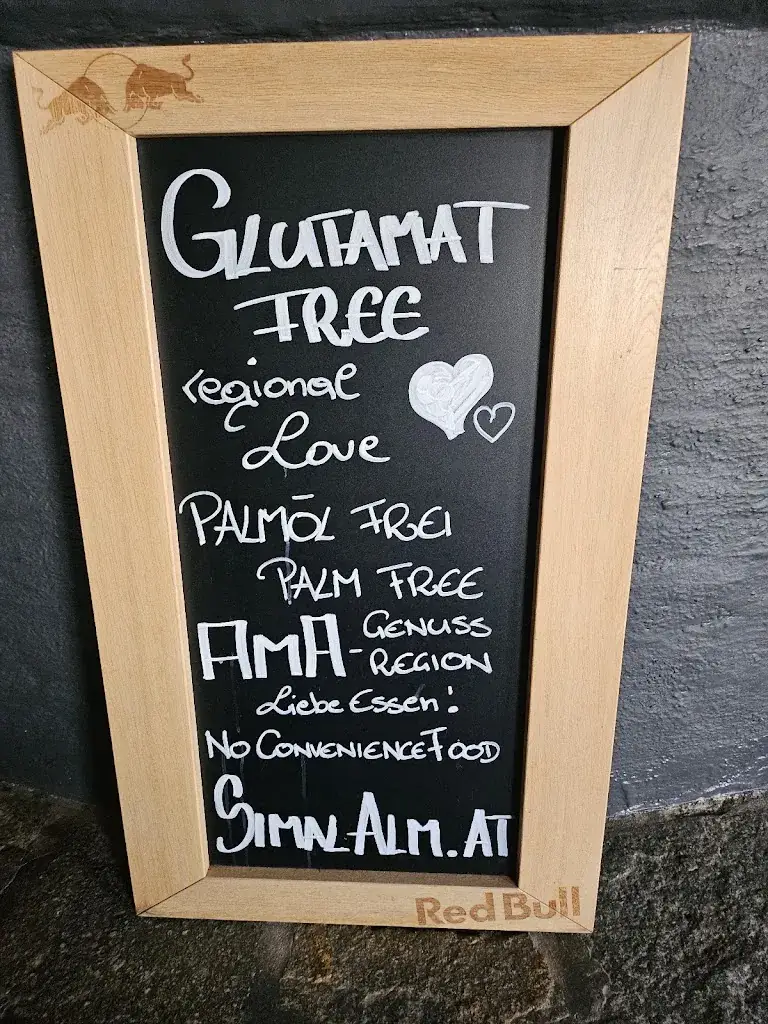 GLUTAMAT
FREE
regional
Love
PALMÖL FREI
PALM FREE
AMA-GENUSS
REGION
Liebe Essen!
NO CONVENIENCE FOOD
SIMALALM.AT
Red Bull